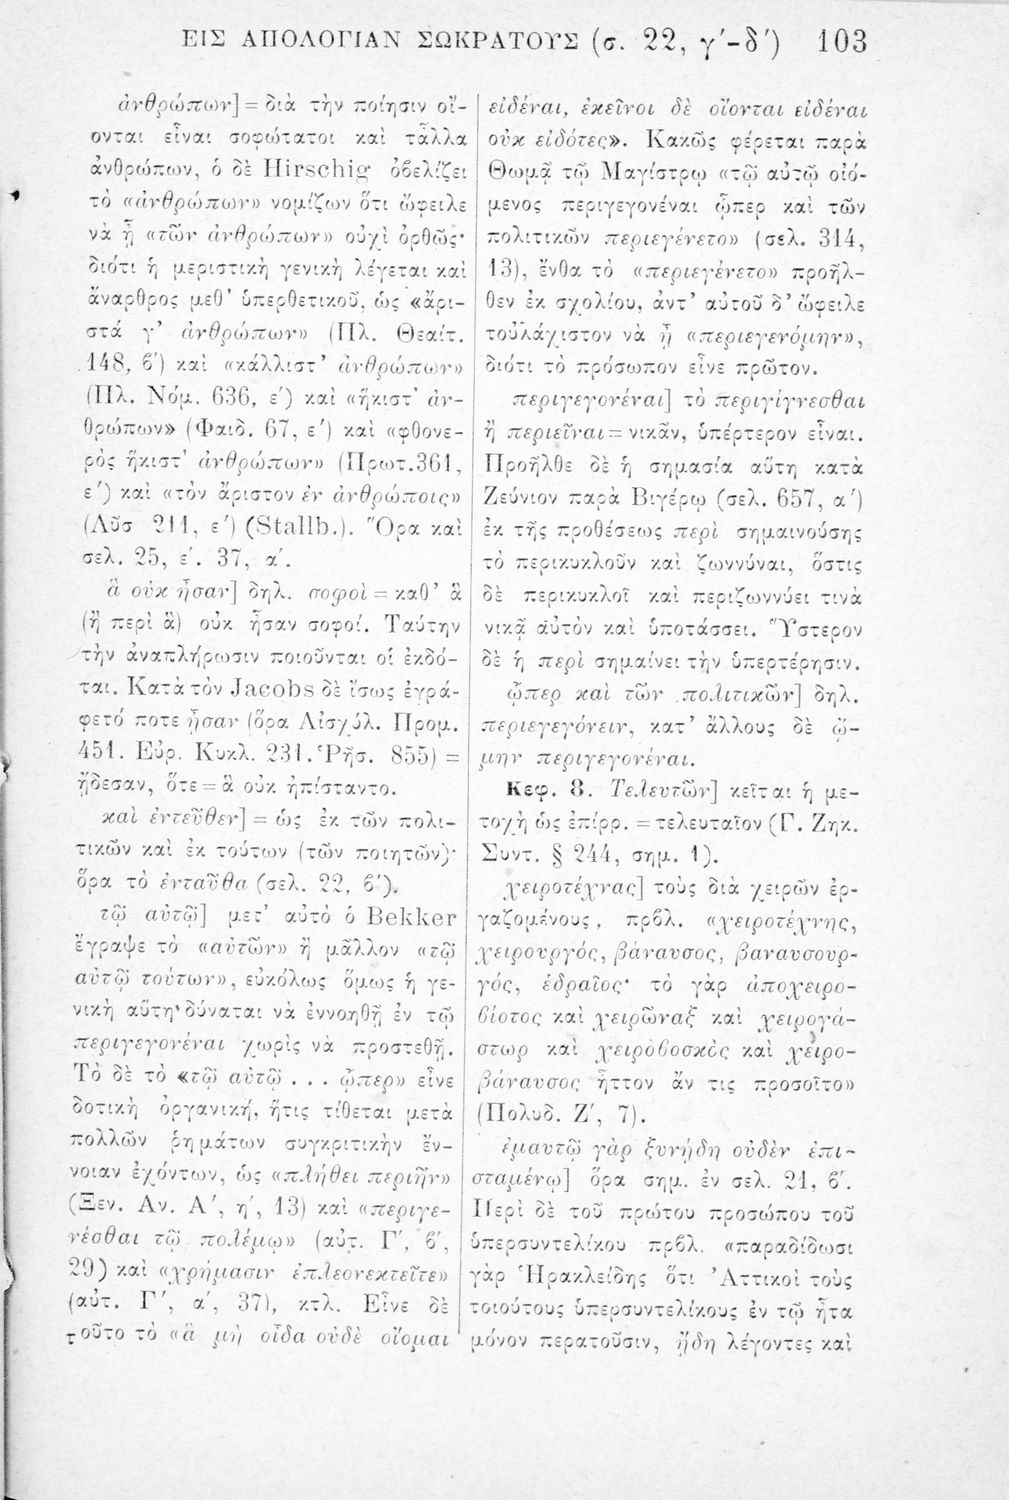 ΕΙΣ ΑΠΟΛΟΓΙΑΝ ΣΩΚΡΑΤΟΥΣ (σ. 22, γ΄-δ΄) 103
ἀνθρώπων] = διὰ τὴν ποίησιν οἴ-
ονται εἶναι σοφώτατοι καὶ τἆλλα
ἀνθρώπων, ὁ δὲ Hirschig ὀβελίζει
τὸ «ἀνθρώπων» νομίζων ὅτι ὤφειλε
νὰ ᾖ «τῶν ἀνθρώπων» οὐχὶ ὀρθῶς·
διότι ἡ μεριστικὴ γενικὴ λέγεται καὶ
ἄναρθρος μεθ' ὑπερθετικοῦ, ὡς «ἄρι-
στά γ' ἀνθρώπων» (Πλ. Θεαίτ.
148, β΄) καὶ «κάλλιστ' ἀνθρώπων»
(Πλ. Νόμ. 636, ε΄) καὶ «ἥκιστ' ἀν-
θρώπων» (Φαιδ. 67, ε΄) καὶ «φθονε-
ρὸς ἥκιστ' ἀνθρώπων» (Πρωτ. 361,
ε΄) καὶ «τὸν ἄριστον ἐν ἀνθρώποις»
(Λῦσ 211, ε΄) (Stallb.). Ὅρα καὶ
σελ. 25, ε΄. 37, α΄.
ἃ οὐκ ἦσαν] δηλ. σοφοὶ = καθ' ἃ
(ἢ περὶ ἃ) οὐκ ἦσαν σοφοί. Ταύτην
τὴν ἀναπλήρωσιν ποιοῦνται οἱ ἐκδό-
ται. Κατὰ τὸν Jacobs δὲ ἴσως ἐγρά-
φετό ποτε ᾖσαν (ὅρα Αἰσχύλ. Προμ.
451. Εὐρ. Κυκλ. 231. Ῥῆσ. 855) =
ᾔδεσαν, ὅτε = ἃ οὐκ ἠπίσταντο.
καὶ ἐντεῦθεν] = ὡς ἐκ τῶν πολι-
τικῶν καὶ ἐκ τούτων (τῶν ποιητῶν)·
ὅρα τὸ ἐνταῦθα (σελ. 22, β΄).
τῷ αὐτῷ] μετ' αὐτὸ ὁ Bekker
ἔγραψε τὸ «αὐτῶν» ἢ μᾶλλον «τῷ
αὐτῷ τούτων», εὐκόλως ὅμως ἡ γε-
νικὴ αὕτη δύναται νὰ ἐννοηθῇ ἐν τῷ
περιγεγονέναι χωρὶς νὰ προστεθῇ.
Τὸ δὲ τὸ «τῷ αὐτῷ . . . ᾧπερ» εἶνε
δοτικὴ ὀργανική, ἥτις τίθεται μετὰ
πολλῶν ῥημάτων συγκριτικὴν ἔν-
νοιαν ἐχόντων, ὡς «πλήθει περιῆν»
(Ξεν. Αν. Α΄, η΄, 13) καὶ «περιγε-
νέσθαι τῷ πολέμῳ» (αὐτ. Γ΄, β΄,
29) καὶ «χρήμασιν ἐπλεονεκτεῖτε»
(αὐτ. Γ΄, α΄, 37), κτλ. Εἶνε δὲ
τοῦτο τὸ «ἃ μὴ οἶδα οὐδὲ οἴομαι
εἰδέναι, ἐκεῖνοι δὲ οἴονται εἰδέναι
οὐκ εἰδότες». Κακῶς φέρεται παρὰ
Θωμᾷ τῷ Μαγίστρῳ «τῷ αὐτῷ οἰό-
μενος περιγεγονέναι ᾧπερ καὶ τῶν
πολιτικῶν περιεγένετο» (σελ. 314,
13), ἔνθα τὸ «περιεγένετο» προῆλ-
θεν ἐκ σχολίου, ἀντ' αὐτοῦ δ' ὤφειλε
τοὐλάχιστον νὰ ᾖ «περιεγενόμην»,
διότι τὸ πρόσωπον εἶνε πρῶτον.
περιγεγονέναι] τὸ περιγίγνεσθαι
ἢ περιεῖναι = νικᾶν, ὑπέρτερον εἶναι.
Προῆλθε δὲ ἡ σημασία αὕτη κατὰ
Ζεύνιον παρὰ Βιγέρῳ (σελ. 657, α΄)
ἐκ τῆς προθέσεως περὶ σημαινούσης
τὸ περικυκλοῦν καὶ ζωννύναι, ὅστις
δὲ περικυκλοῖ καὶ περιζωννύει τινὰ
νικᾷ αὐτὸν καὶ ὑποτάσσει. Ὕστερον
δὲ ἡ περὶ σημαίνει τὴν ὑπερτέρησιν.
ᾧπερ καὶ τῶν πολιτικῶν] δηλ.
περιεγεγόνειν, κατ' ἄλλους δὲ ᾤ-
μην περιγεγονέναι.
Κεφ. 8. Τελευτῶν] κεῖται ἡ με-
τοχὴ ὡς ἐπίρρ. = τελευταῖον (Γ. Ζηκ.
Συντ. § 244, σημ. 1).
χειροτέχνας] τοὺς διὰ χειρῶν ἐρ-
γαζομένους, πρβλ. «χειροτέχνης,
χειρουργός, βάναυσος, βαναυσουρ-
γός, ἑδραῖος· τὸ γὰρ ἀποχειρο-
βίοτος καὶ χειρῶναξ καὶ χειρογά-
στωρ καὶ χειροβοσκὸς καὶ χειρο-
βάναυσος ἧττον ἄν τις προσοῖτο»
(Πολυδ. Ζ΄, 7).
ἐμαυτῷ γὰρ ξυνῄδη οὐδὲν ἐπι-
σταμένῳ] ὅρα σημ. ἐν σελ. 21, β΄.
Περὶ δὲ τοῦ πρώτου προσώπου τοῦ
ὑπερσυντελίκου πρβλ. «παραδίδωσι
γὰρ Ἡρακλείδης ὅτι Ἀττικοὶ τοὺς
τοιούτους ὑπερσυντελίκους ἐν τῷ ἦτα
μόνον περατοῦσιν, ᾔδη λέγοντες καὶ